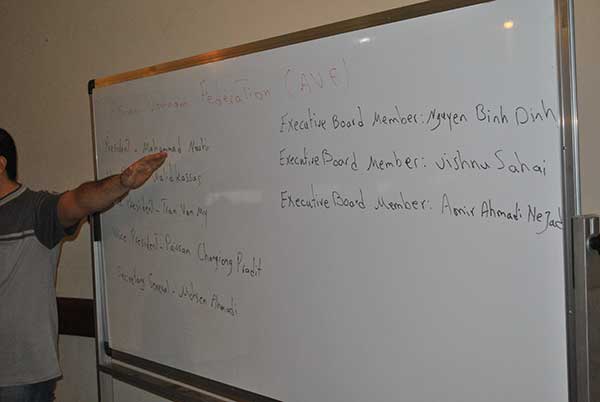 Vovinam Federation (AVF)
President - Mohammad
Walid Kassas
President - Tran Van My
Vice President - Passan Pradit
Secretary General - Mohsen Ahmadi
Executive Board Member: Nguyen Binh Dinh
Executive Board Member: Vishnu Sahai
Executive Board Member: Amir Ahmadi Nejad